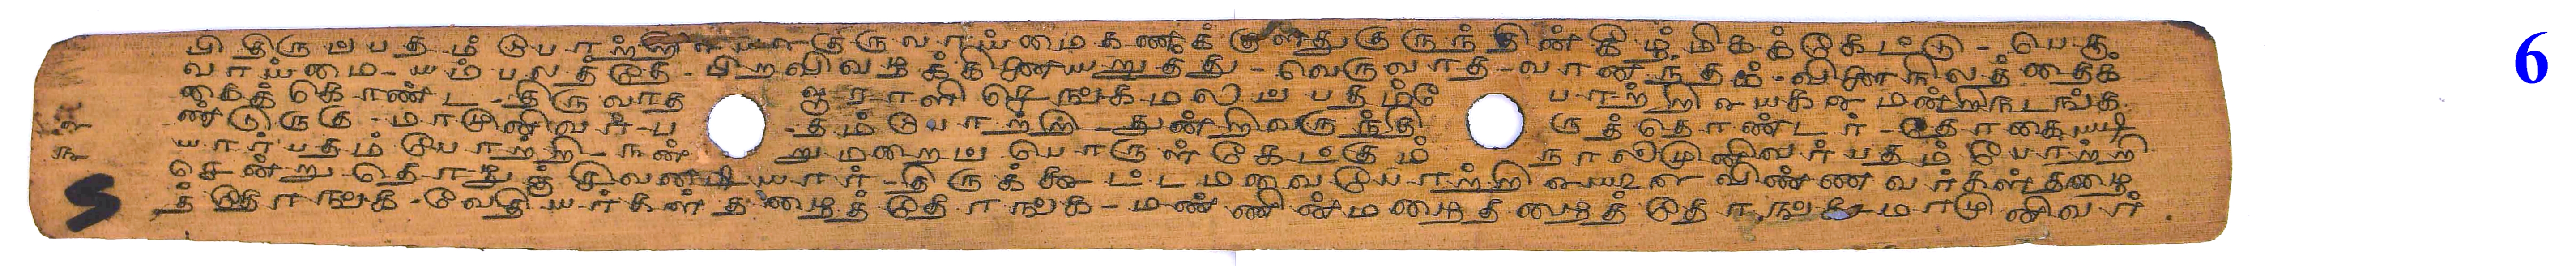 பி திருப்பதம் போற்றி எயளகுருவாய்மைகணக் குளத்துகுருந்தின் கீழ் மிகக்கேட்டு - பெரு
வாய்மை - யம்பலத்தே - பிறவிவழக்கினையறுத்து - வெருவாத - வானந்தம் - வினைநிலத்தைக்
கைத்கொண்ட - திருவாத ஜராளி செங்கமலப்பதம்போற்றி எயகஎ மன்றிநடங்க
ண்டுருகு - மாமுனிவர் - பதம்போற்றி - துன்றிவருந்திருத்தொண்டர் - தொகையடி
யார்பதம்போற்றி - நன்றுமறைப்பொருள்கேட்கும் நால்முனிவர்பதம்போற்றி
சென்று தொழுத் சிவனடியார் - திருக்கூட்டமவை போற்றி எயஉள விண்ணவர்கள்தழை
த்தோங்க - வேதியர்கள் தழைத்தோங்க - மண்ணின்மழைதழைத்தோங்க - மாமுனிவர்
S
6